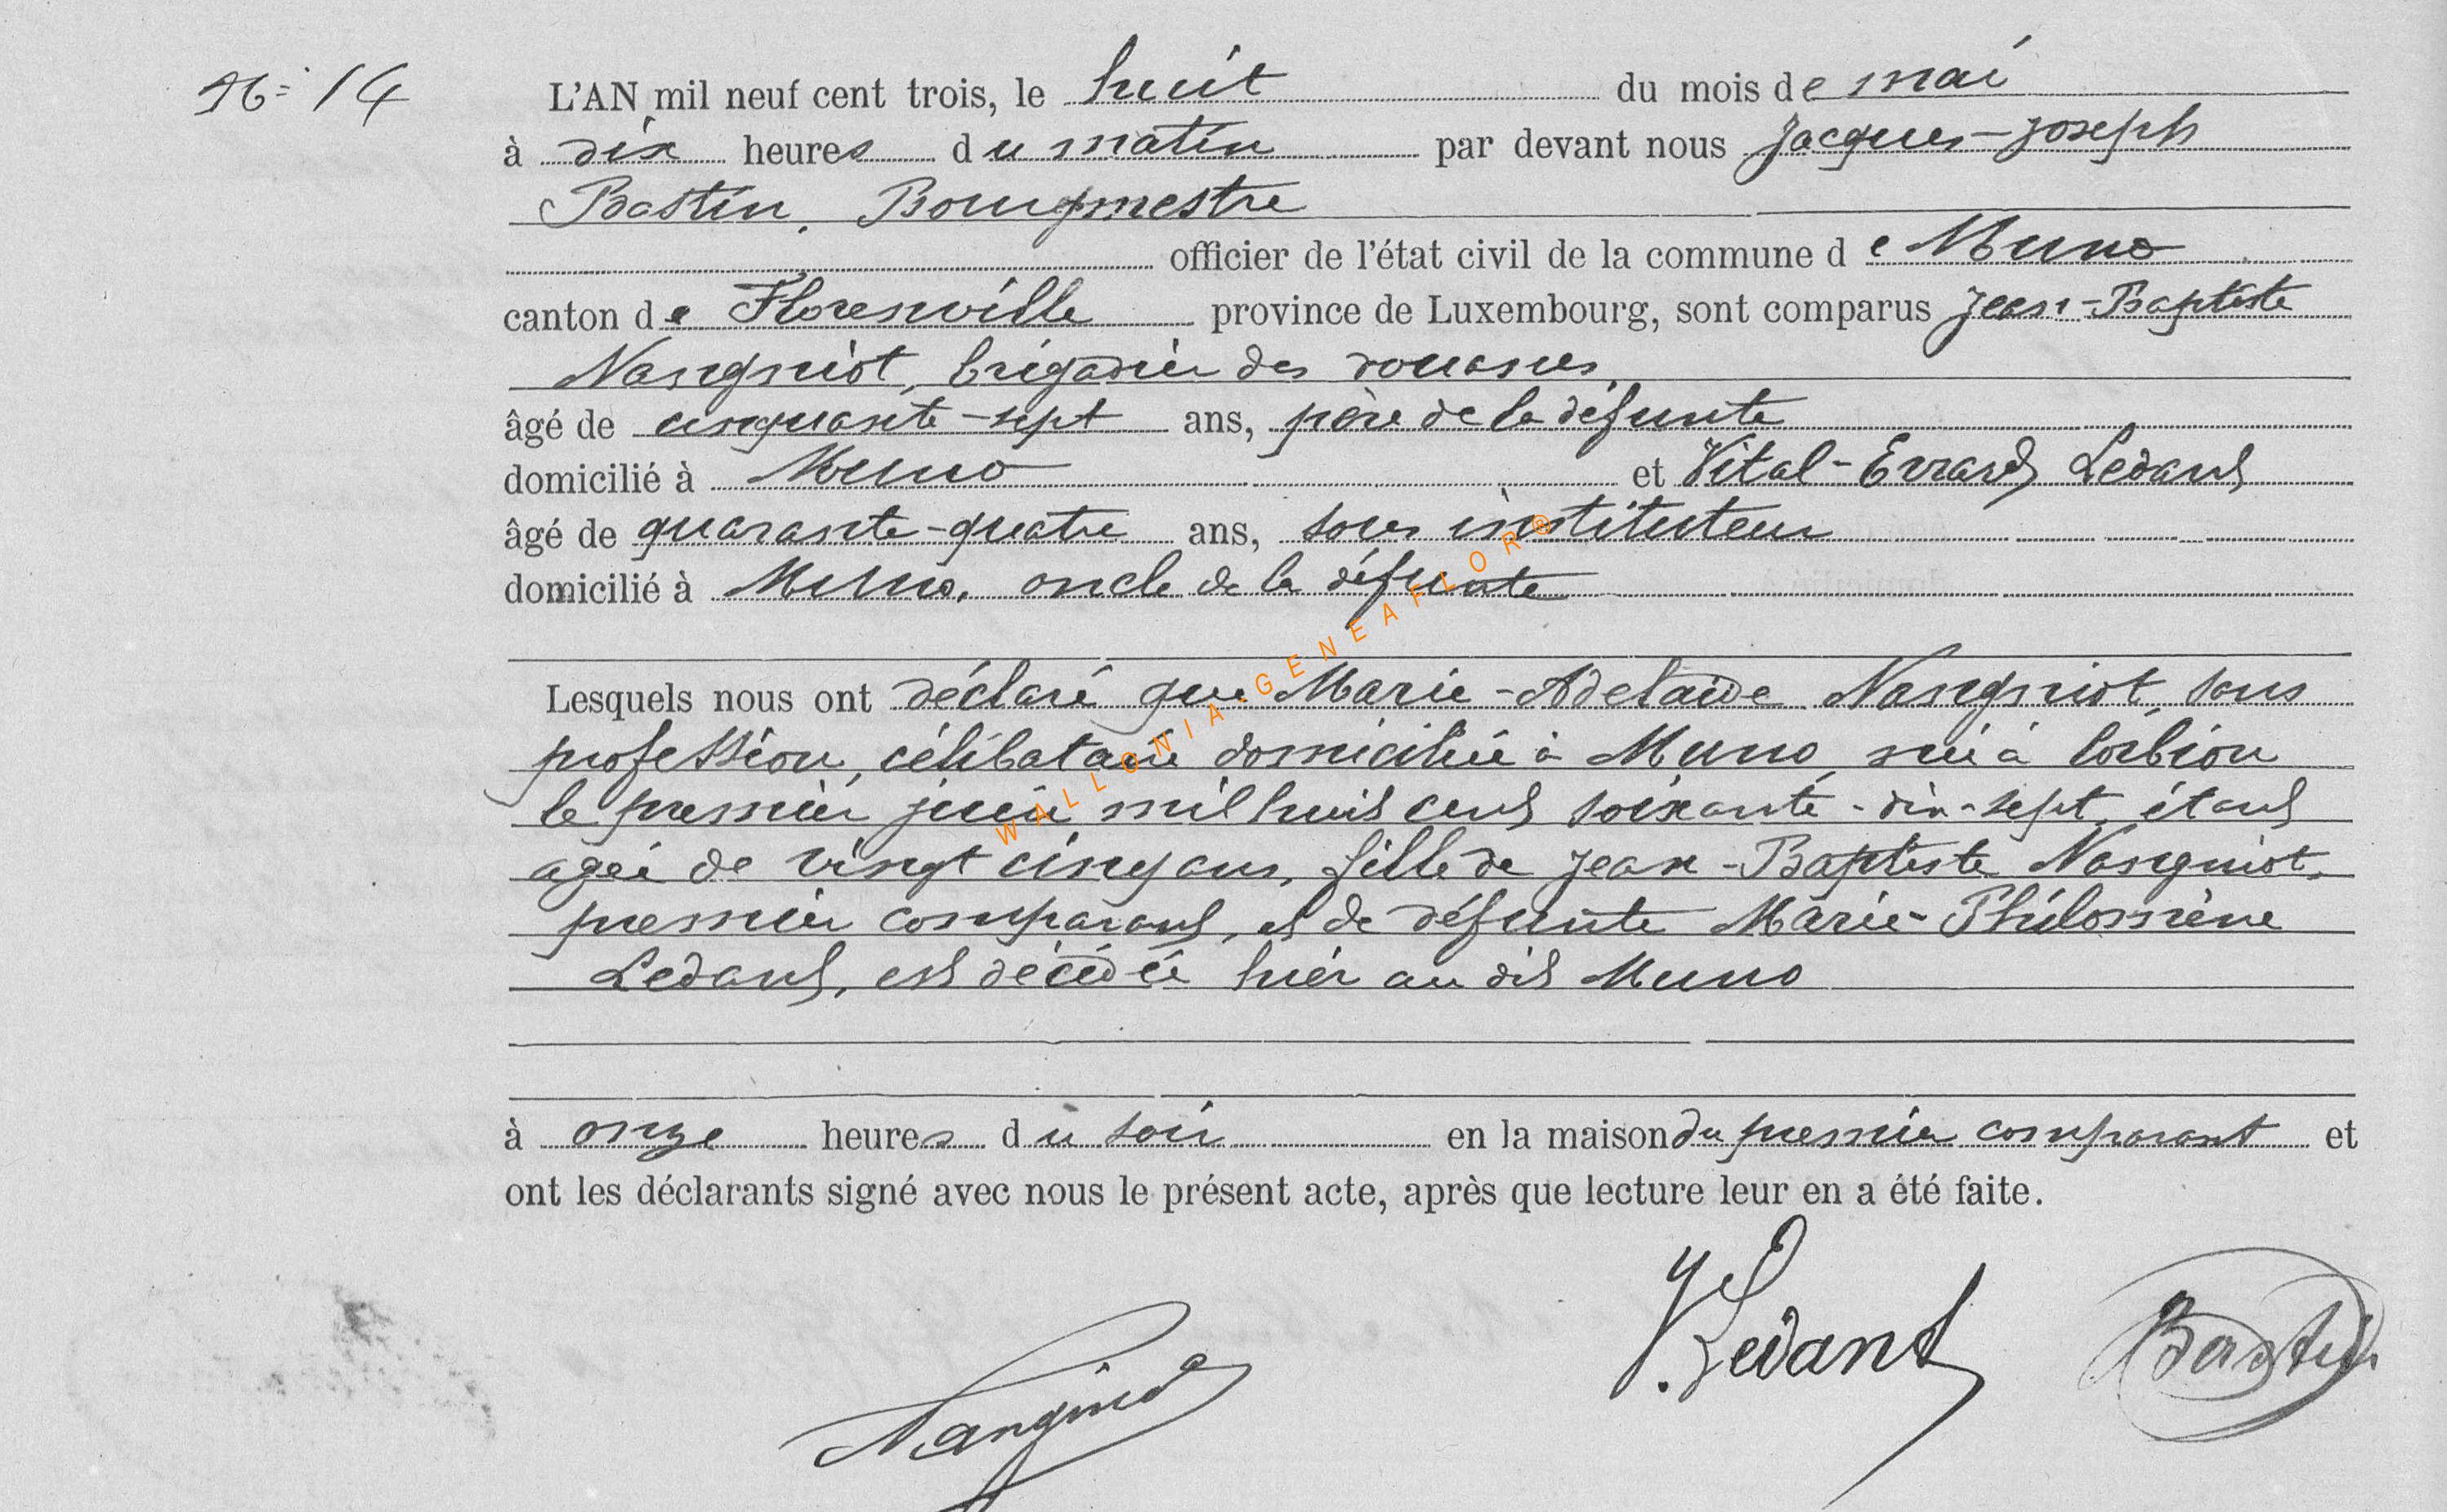 N° 14
L'AN mil neuf cent trois, le huit du mois de mai
à dix heures du matin par devant nous Jacques-Joseph
Bastin, Bourgmestre
officier de l'état civil de la commune de Muno
canton de Florenville province de Luxembourg, sont comparus Jean-Baptiste
Nangniot, brigadier des douanes,
âgé de cinquante-sept ans, père de la défunte
domicilié à Muno et Vital-Evrard Ledant
âgé de quarante-quatre ans, sous instituteur
domicilié à Muno, oncle de la défunte
Lesquels nous ont déclaré que Marie-Adelaïde Nangniot, sans
profession, célibataire domiciliée à Muno, née à Corbion
le premier juin mil huit cent soixante-dix-sept, étant
agée de vingt cinq ans, fille de Jean-Baptiste Nangniot,
premier comparant, et de défunte Marie-Philomène
Ledant, est décédée hier au dit Muno
à onze heures du soir en la maison du premier comparant et
ont les déclarants signé avec nous le présent acte, après que lecture leur en a été faite.
Nangniot
V. Ledant
Bastin
WALLONIA.GENEAFLOR®